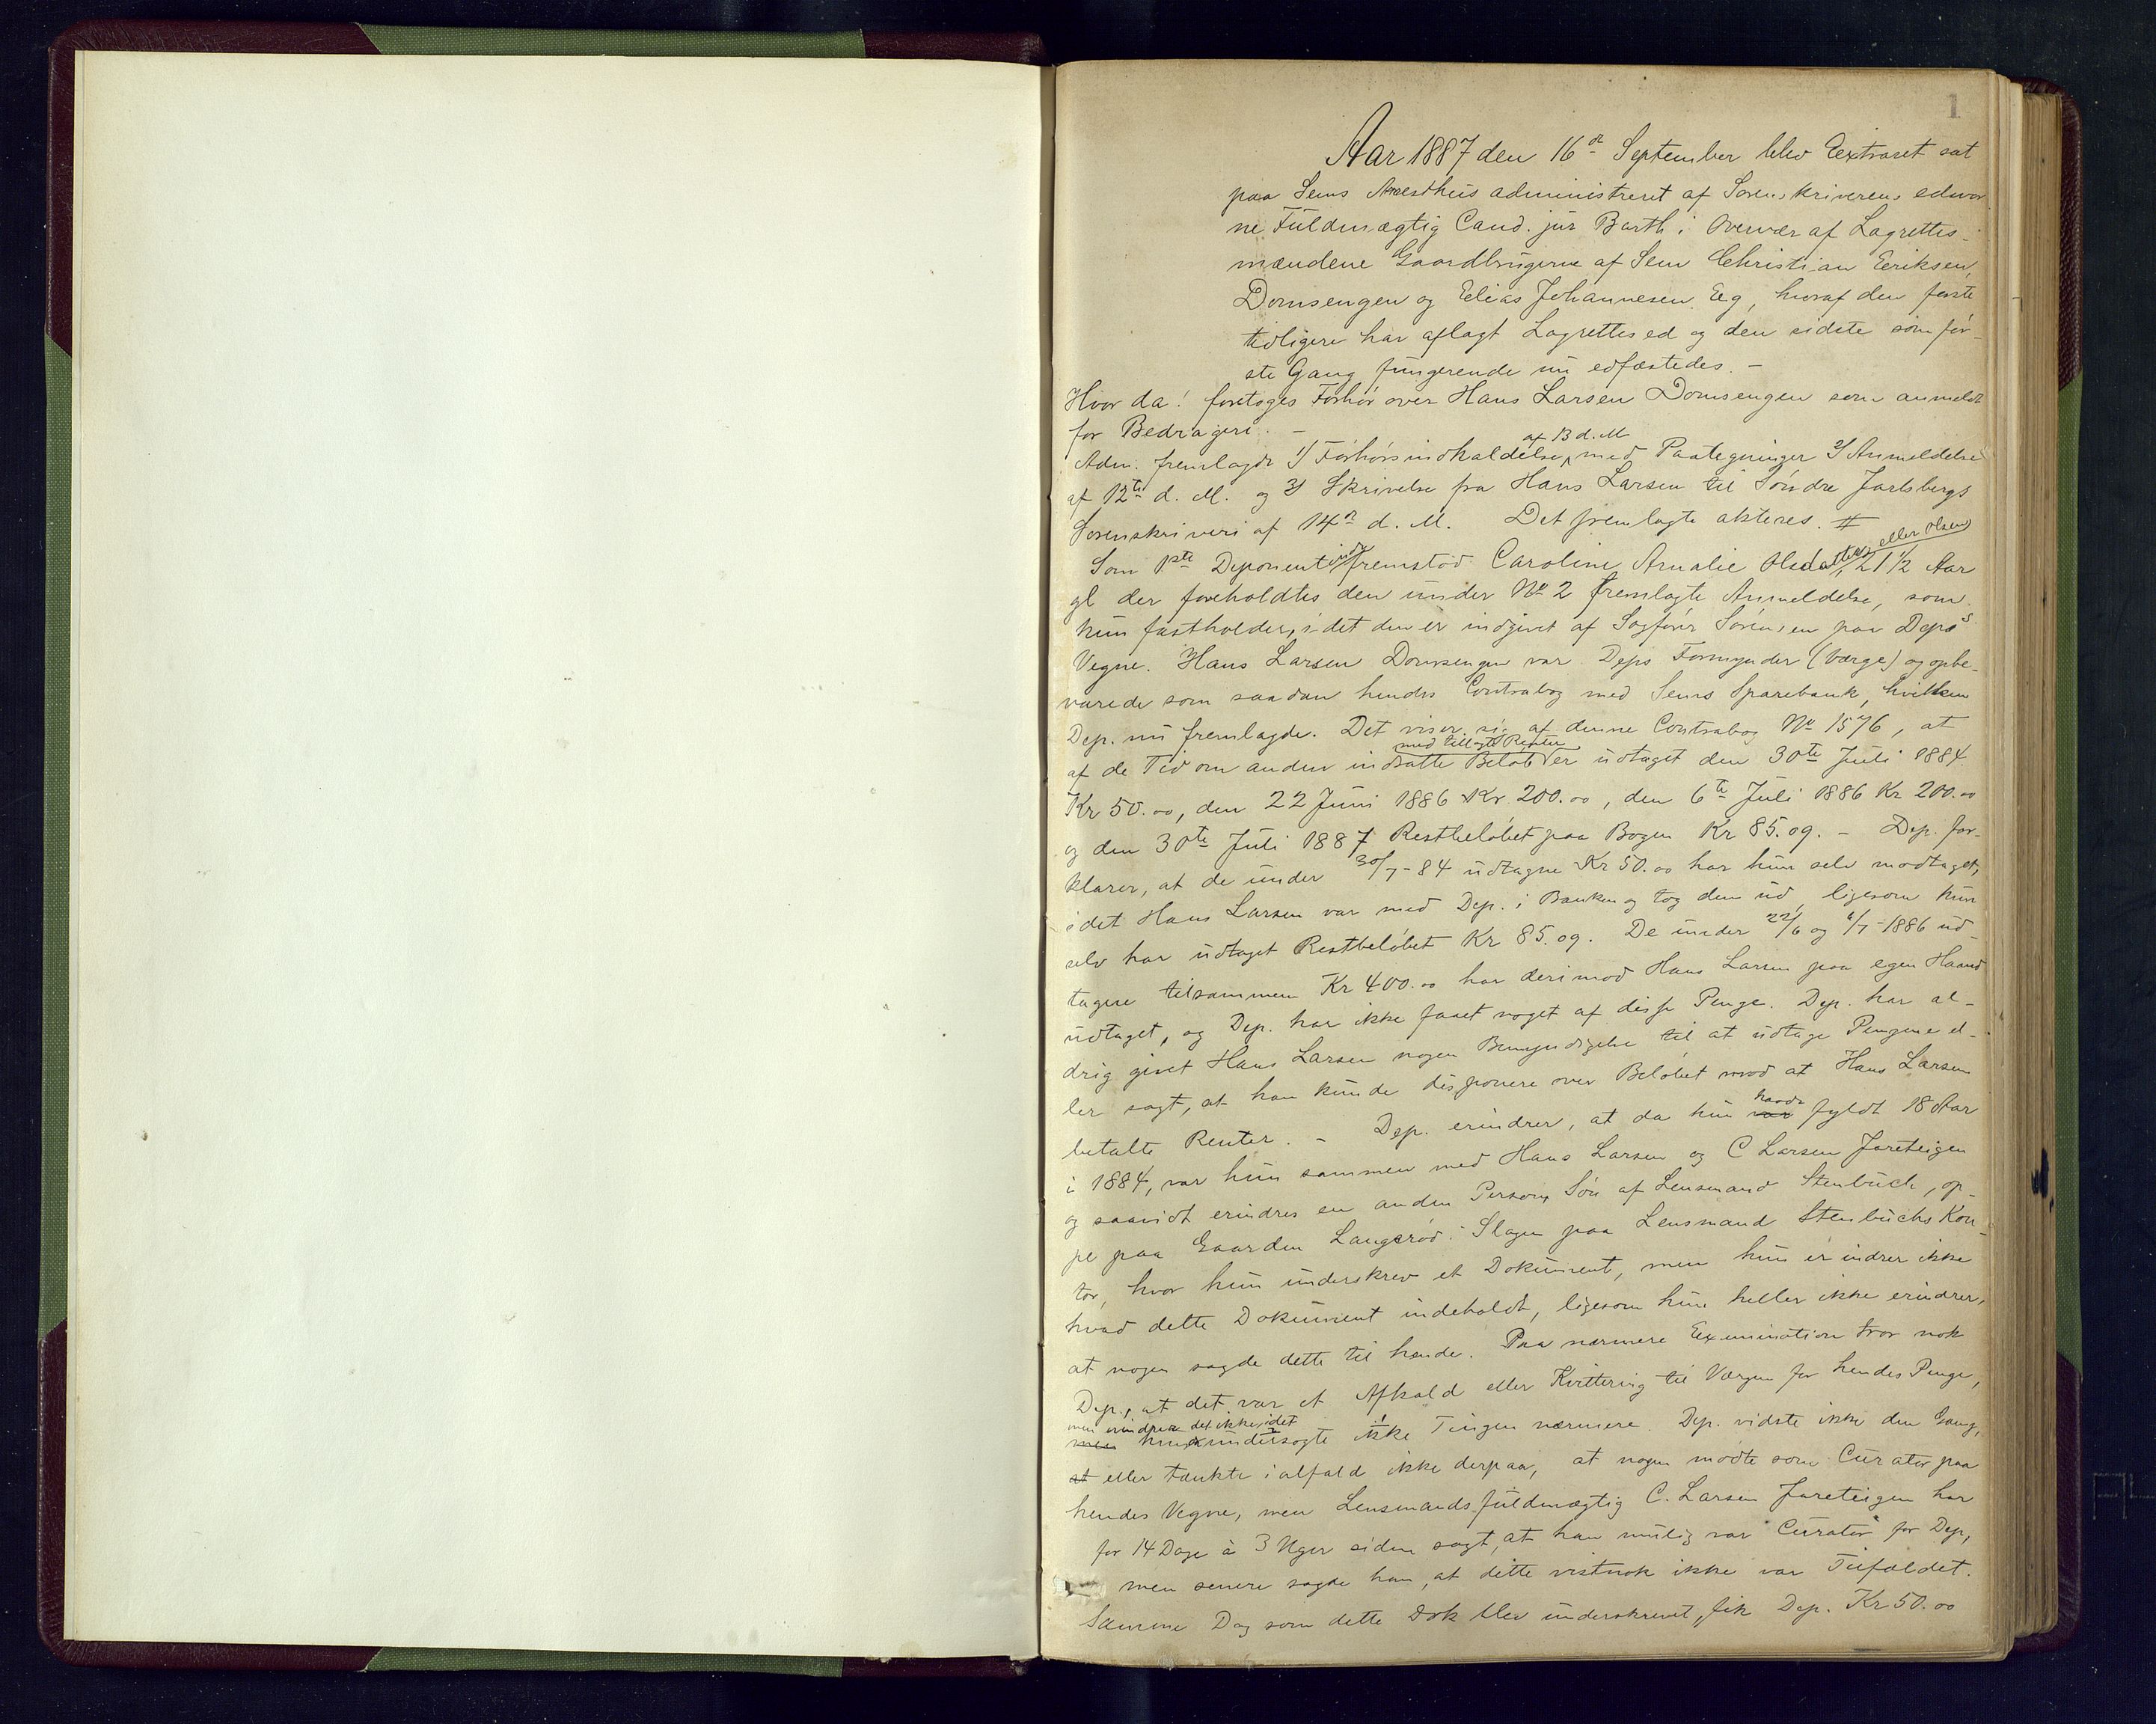 1
Aar 1887 den 16de September blev Extraret sat
paa Sems Arresthus administreret af Sorenskriverens edsvor
ne Fuldmægtig Cand. jur Barth i Overvær af Lagrettes-
mændene Gaardbrugerne af Sem Christian Eriksen
Domsengen og Elias Johannesen Eeg, hvoraf den første
tidligere har aflagt Lagrettesed og den sidste som før-
ste Gang fungerende nu edfæstedes. -
Hvor da! foretoges Forhør over Hans Larsen Domsengen som anmeldt
for Bedrageri. -
af 13 d. M
Adm. fremlagde 1) Forhørsindkaldelse, med Paategninger 2) Anmeldelse
af 12te d. M. og 3) Skrivelse fra Hans Larsen til Søndre Jarlsbergs
Sorenskriveri af 14de d. M. Det fremlagte akteres. #
eller Olsen
Som 1ste Deponentinde fremstod Caroline Amalie Olsdatter, 21 1/2 Aar
gl der foreholdtes den under No 2 fremlagte Anmeldelse, som
hun fastholder, idet den er indgivet af Sagfører Sørensen paa Deps
Vegne. Hans Larsen Domsengen var Deps Formynder (Værge) og opbe-
varede som saadan hendes Contrabog med Sems Sparebank, hvilken
Dep. nu fremlagde. Det viser sig af denne Contrabog No 1576, at
med tillagte Renter
af de Tid om anden indsatte Beløb er udtaget den 30te Juli 1884
Kr 50.00, den 22 Juni 1886 Kr. 200.00, den 6te Juli 1886 Kr 200.00
og den 30te Juli 1887 Restbeløbet paa Bogen Kr 85.09. - Dep. for-
klarer, at de under 30/7-84 udtagne Kr 50.00 har hun selv modtaget,
idet Hans Larsen var med Dep. i Banken og tog dem ud, ligesom hun
selv har udtaget Restbeløbet Kr 85.09. De under 22/6 og 6/7-1886 ud-
tagne tilsammen Kr 400.00 har derimod Hans Larsen paa egen Haand
udtaget, og Dep. har ikke faaet noget af disse Penge. Dep. har al-
drig givet Hans Larsen nogen Bemyndigelse til at udtage Pengene el-
ler sagt, at han kunde disponere over Beløbet mod at Hans Larsen
havde
betalte Renter. - Dep. erindrer, at da hun var fyldt 18 Aar
i 1884, var hun sammen med Hans Larsen og C Larsen Jareteigen
og saavidt erindres en anden Person, Søn af Lensmand Stenbuch, op-
pe paa Gaarden Langerød i Slagen paa Lensmand Stenbuchs Kon-
tor, hvor hun underskrev et Dokument, men hun erindrer ikke
hvad dette Dokument indeholdt, ligesom hun heller ikke erindrer,
at nogen sagde dette til hende. Paa nærmere Examination tror nok
Dep., at det var et Afkald eller Kvittering til Værgen for hendes Penge,
men erindrer det ikke, idet
men hun undersøgte ikke Tingen nærmere. Dep. vidste ikke den Gang,
at eller tænkte ialfald ikke derpaa, at nogen mødte som Curator paa
hendes Vegne, men Lensmandsfuldmægtig C. Larsen Jareteigen har
for 14 Dage à 3 Uger siden sagt, at han mulig var Curator for Dep,
men senere sagde han, at dette vistnok ikke var Tilfældet.
Samme Dag som dette Dok blev underskrevet, fik Dep. Kr 50.00